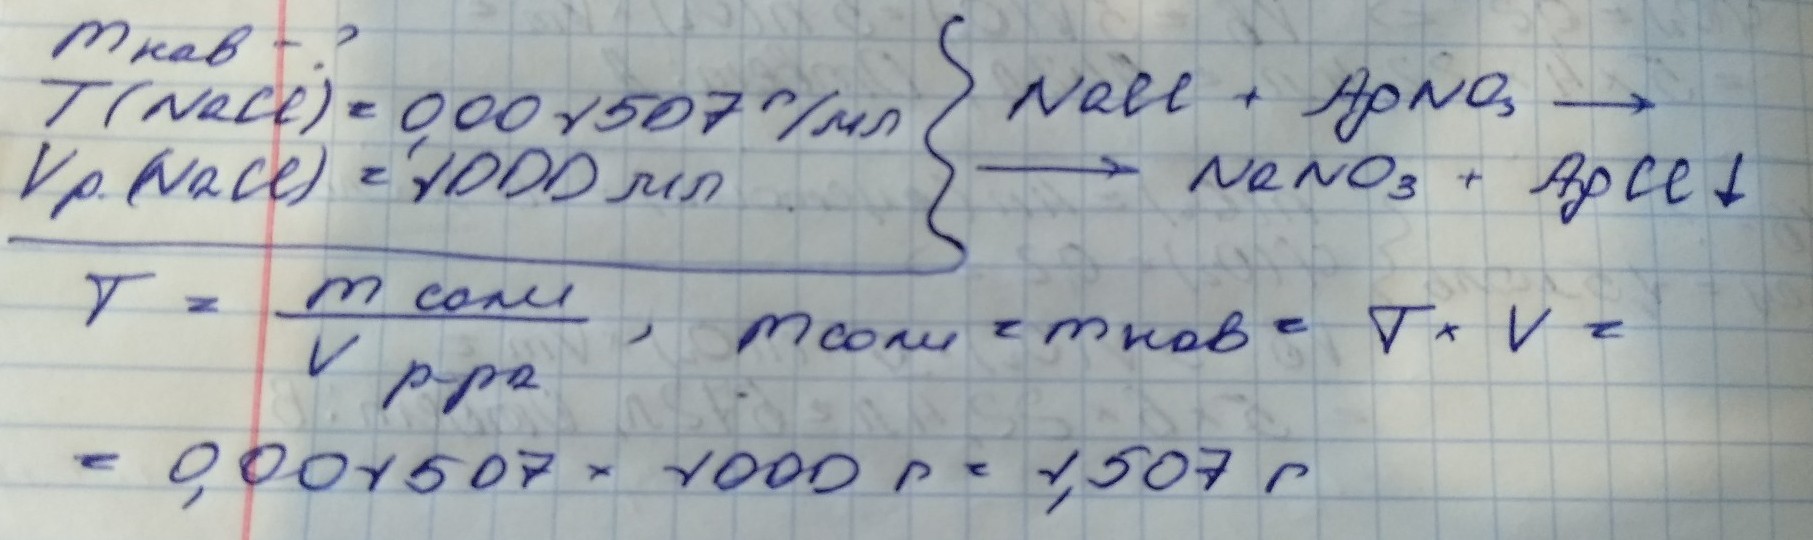 m нав - ?
T(NaCl) = 0,001507 г/мл
Vр.(NaCl) = 1000 мл
NaCl + AgNO3 →
→ NaNO3 + AgCl↓
T = m соли / V р-ра , m соли = m нав = T × V =
= 0,001507 × 1000 г = 1,507 г